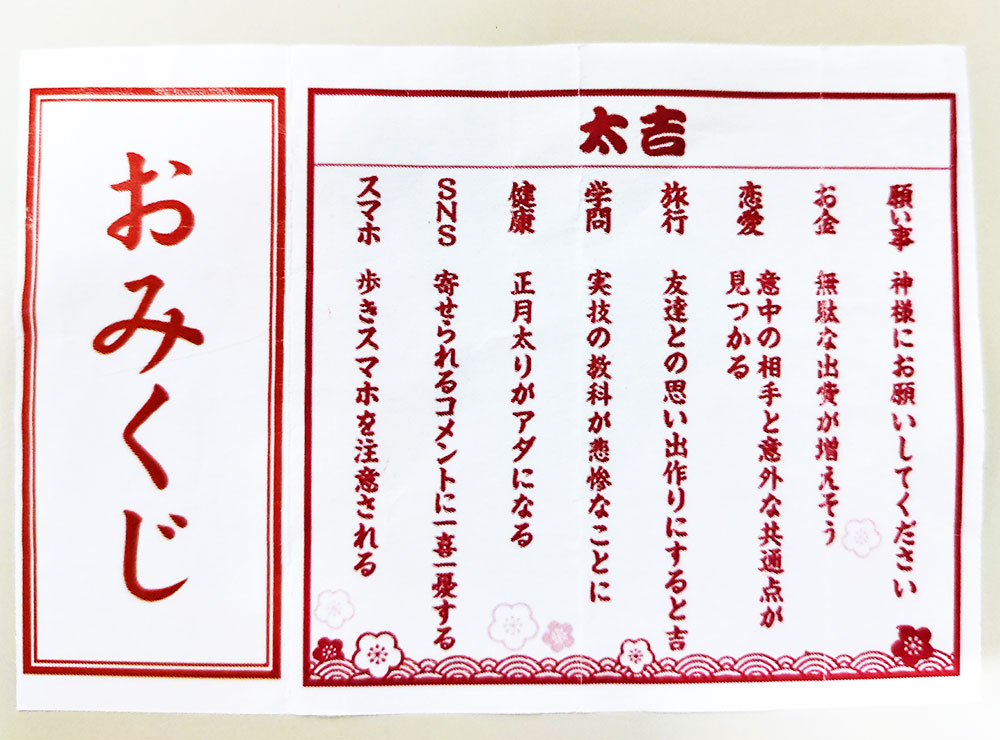 おみくじ
太吉
願い事 神様にお願いしてください
お金 無駄な出費が増えそう
恋愛 意中の相手と意外な共通点が
見つかる
旅行 友達との思い出作りにすると吉
学問 実技の教科が悲惨なことに
健康 正月太りがアダになる
SNS 寄せられるコメントに一喜一憂する
スマホ 歩きスマホを注意される